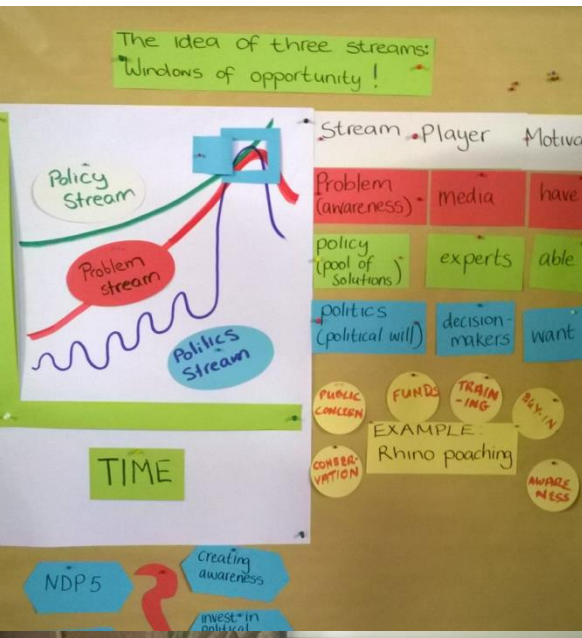 The idea of three streams:
Windows of opportunity!
Policy
Stream
Problem
stream
Politics
Stream
TIME
Stream Player Motiva
Problem
(awareness)
media
have
policy
(pool of
solutions)
experts
able
politics
(political will)
decision-
makers
want
PUBLIC
CONCERN
FUNDS
TRAIN-
ING
BUY-IN
EXAMPLE:
Rhino poaching
CONSER-
VATION
AWARE
NESS
NDP 5
creating
awareness
invest in
political